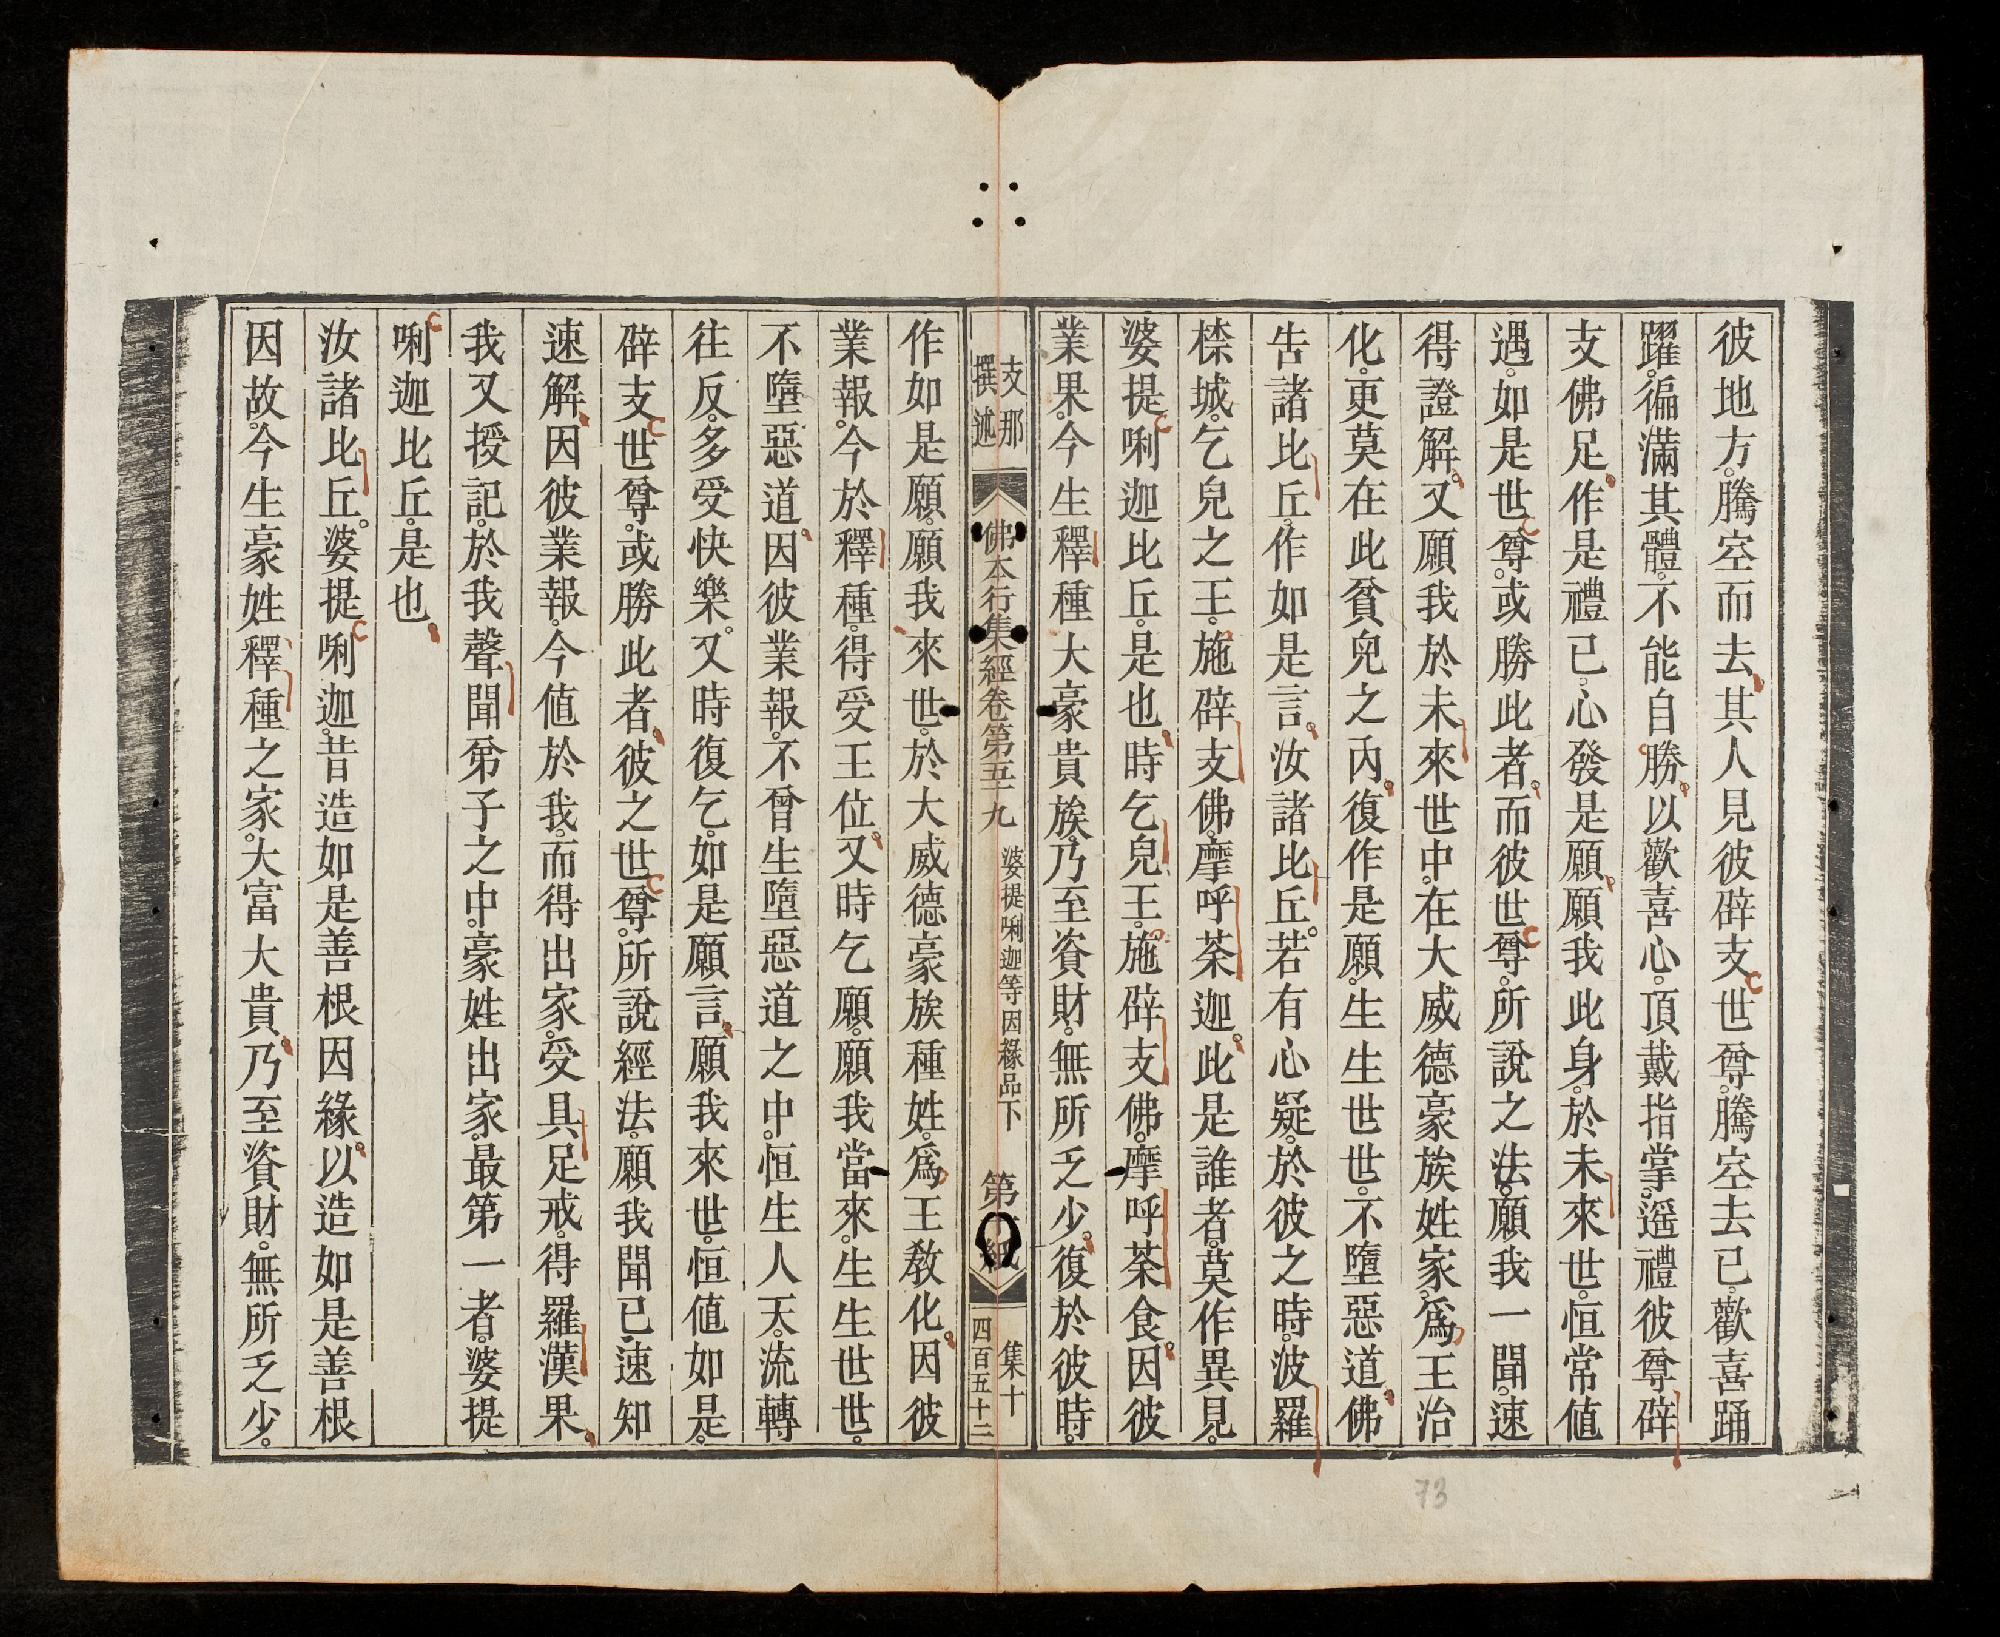 彼地方。騰空而去。其人見彼辟支世尊。騰空去已。歡喜踊
躍。徧滿其體。不能自勝。以歡喜心。頂戴指掌。遥禮彼尊辟
支佛足。作是禮已。心發是願。願我此身。於未來世。恒常値
遇。如是世尊。或勝此者。而彼世尊。所說之法。願我一聞。速
得證解。又願我於未來世中。在大威德豪族姓家。爲王治
化。更莫在此貧兒之內。復作是願。生生世世。不墮惡道。佛
告諸比丘。作如是言。汝諸比丘。若有心疑。於彼之時。波羅
㮈城。乞兒之王。施辟支佛。摩呼荼迦。此是誰者。莫作異見。
婆提唎迦比丘。是也。時乞兒王。施辟支佛。摩呼荼食。因彼
業果。今生釋種大豪貴族。乃至資財。無所乏少。復於彼時。
支那
撰述
佛本行集經卷第五十九 婆提唎迦等因緣品下 第 紙
集十
四百五十二
作如是願。願我來世。於大威德豪族種姓。爲王敎化。因彼
業報。今於釋種。得受王位。又時乞願。願我當來。生生世世。
不墮惡道。因彼業報。不曾生墮惡道之中。恒生人天。流轉
往反。多受快樂。又時復乞。如是願言。願我來世。恒値如是。
辟支世尊。或勝此者。彼之世尊。所說經法。願我聞已。速知
速解。因彼業報。今値於我。而得出家。受具足戒。得羅漢果。
我又授記。於我聲聞弟子之中。豪姓出家。最第一者。婆提
唎迦比丘。是也。
汝諸比丘。婆提唎迦。昔造如是善根因緣。以造如是善根
因故。今生豪姓釋種之家。大富大貴。乃至資財。無所乏少。
73